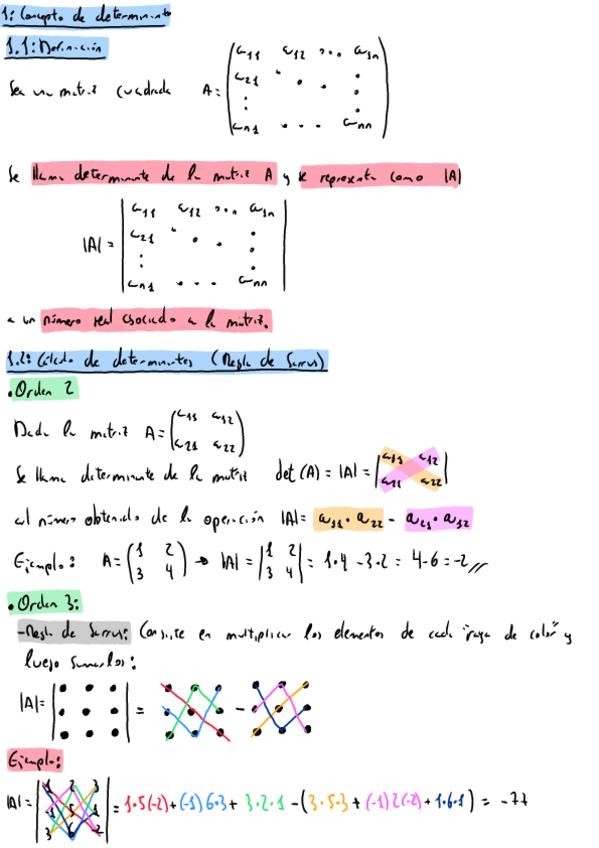 1: Concepto de determinante
1.1: Definición
Sea una matriz cuadrada A = (a11 a12 ... a1n
a21 . . . .
: . . . .
an1 ... ann)
Se llama determinante de la matriz A y se representa como |A|
|A| = |a11 a12 ... a1n
a21 . . . .
: . . . .
an1 ... ann|
a un número real asociado a la matriz.
1.2: Cálculo de determinantes (Regla de Sarrus)
• Orden 2
Dada la matriz A = (a11 a12
a21 a22)
Se llama determinante de la matriz det (A) = |A| = |a11 a12
a21 a22|
al número obtenido de la operación |A| = a11 · a22 - a21 · a12
Ejemplo: A = (1 2
3 4) → |A| = |1 2
3 4| = 1·4 - 3·2 = 4-6 = -2 //
• Orden 3:
-Regla de Sarrus: Consiste en multiplicar los elementos de cada "raya de color" y
luego sumarlos:
|A| = | | = -
Ejemplo:
|A| = | | = 1·5(-2)+(-1)6·3+ 3·2·1 -(3·5·3 +(-1)2(-2) + 1·6·1) = -77